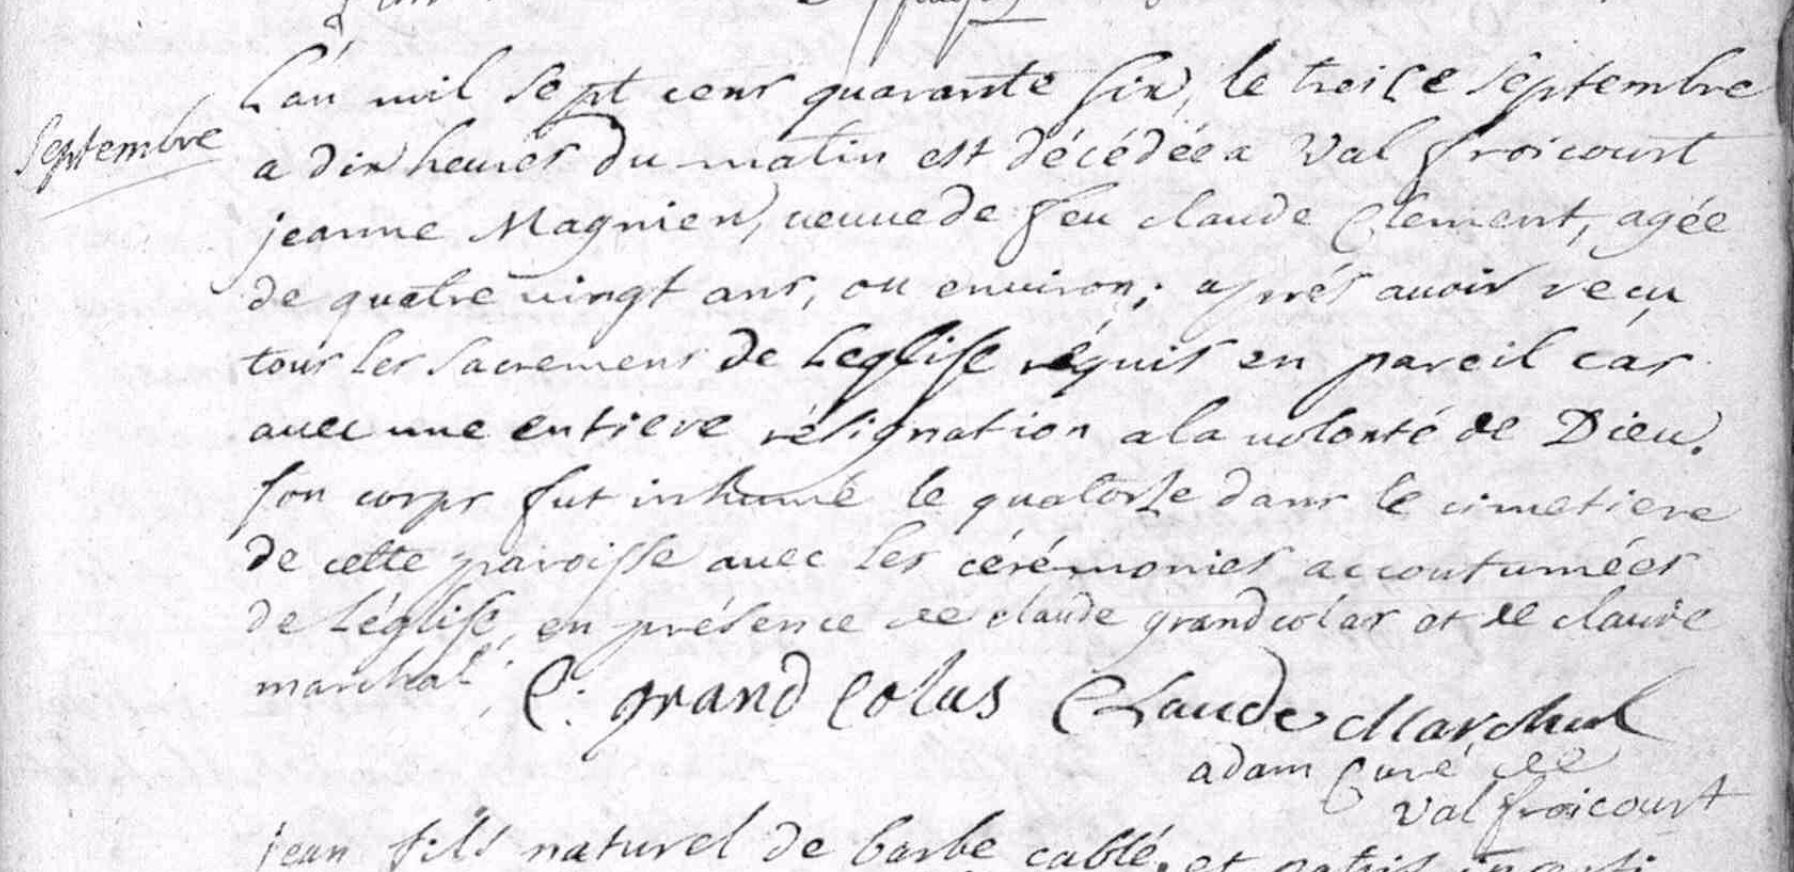 L'an mil sept cens quarante six, le treise septembre
septembre
a dix heures du matin est décédée a Valfroicourt
jeanne Magnien, veuve de feu claude Clement, agée
de quatre vingt ans, ou environ; aprés avoir reçu
tous les sacremens de Leglise réquis en pareil cas
avec une entiere résignation a la volonté de Dieu.
son corps fut inhumé le quatorse dans le cimetiere
de cette paroisse avec les cérémonies accoutumées
de Léglise, en présence de claude grandcolas et de claude
marchal. C. grand Colas Claude Marchal
adam Curé de
Valfroicourt
jean fils naturel de barbe cablé, et patris incerti